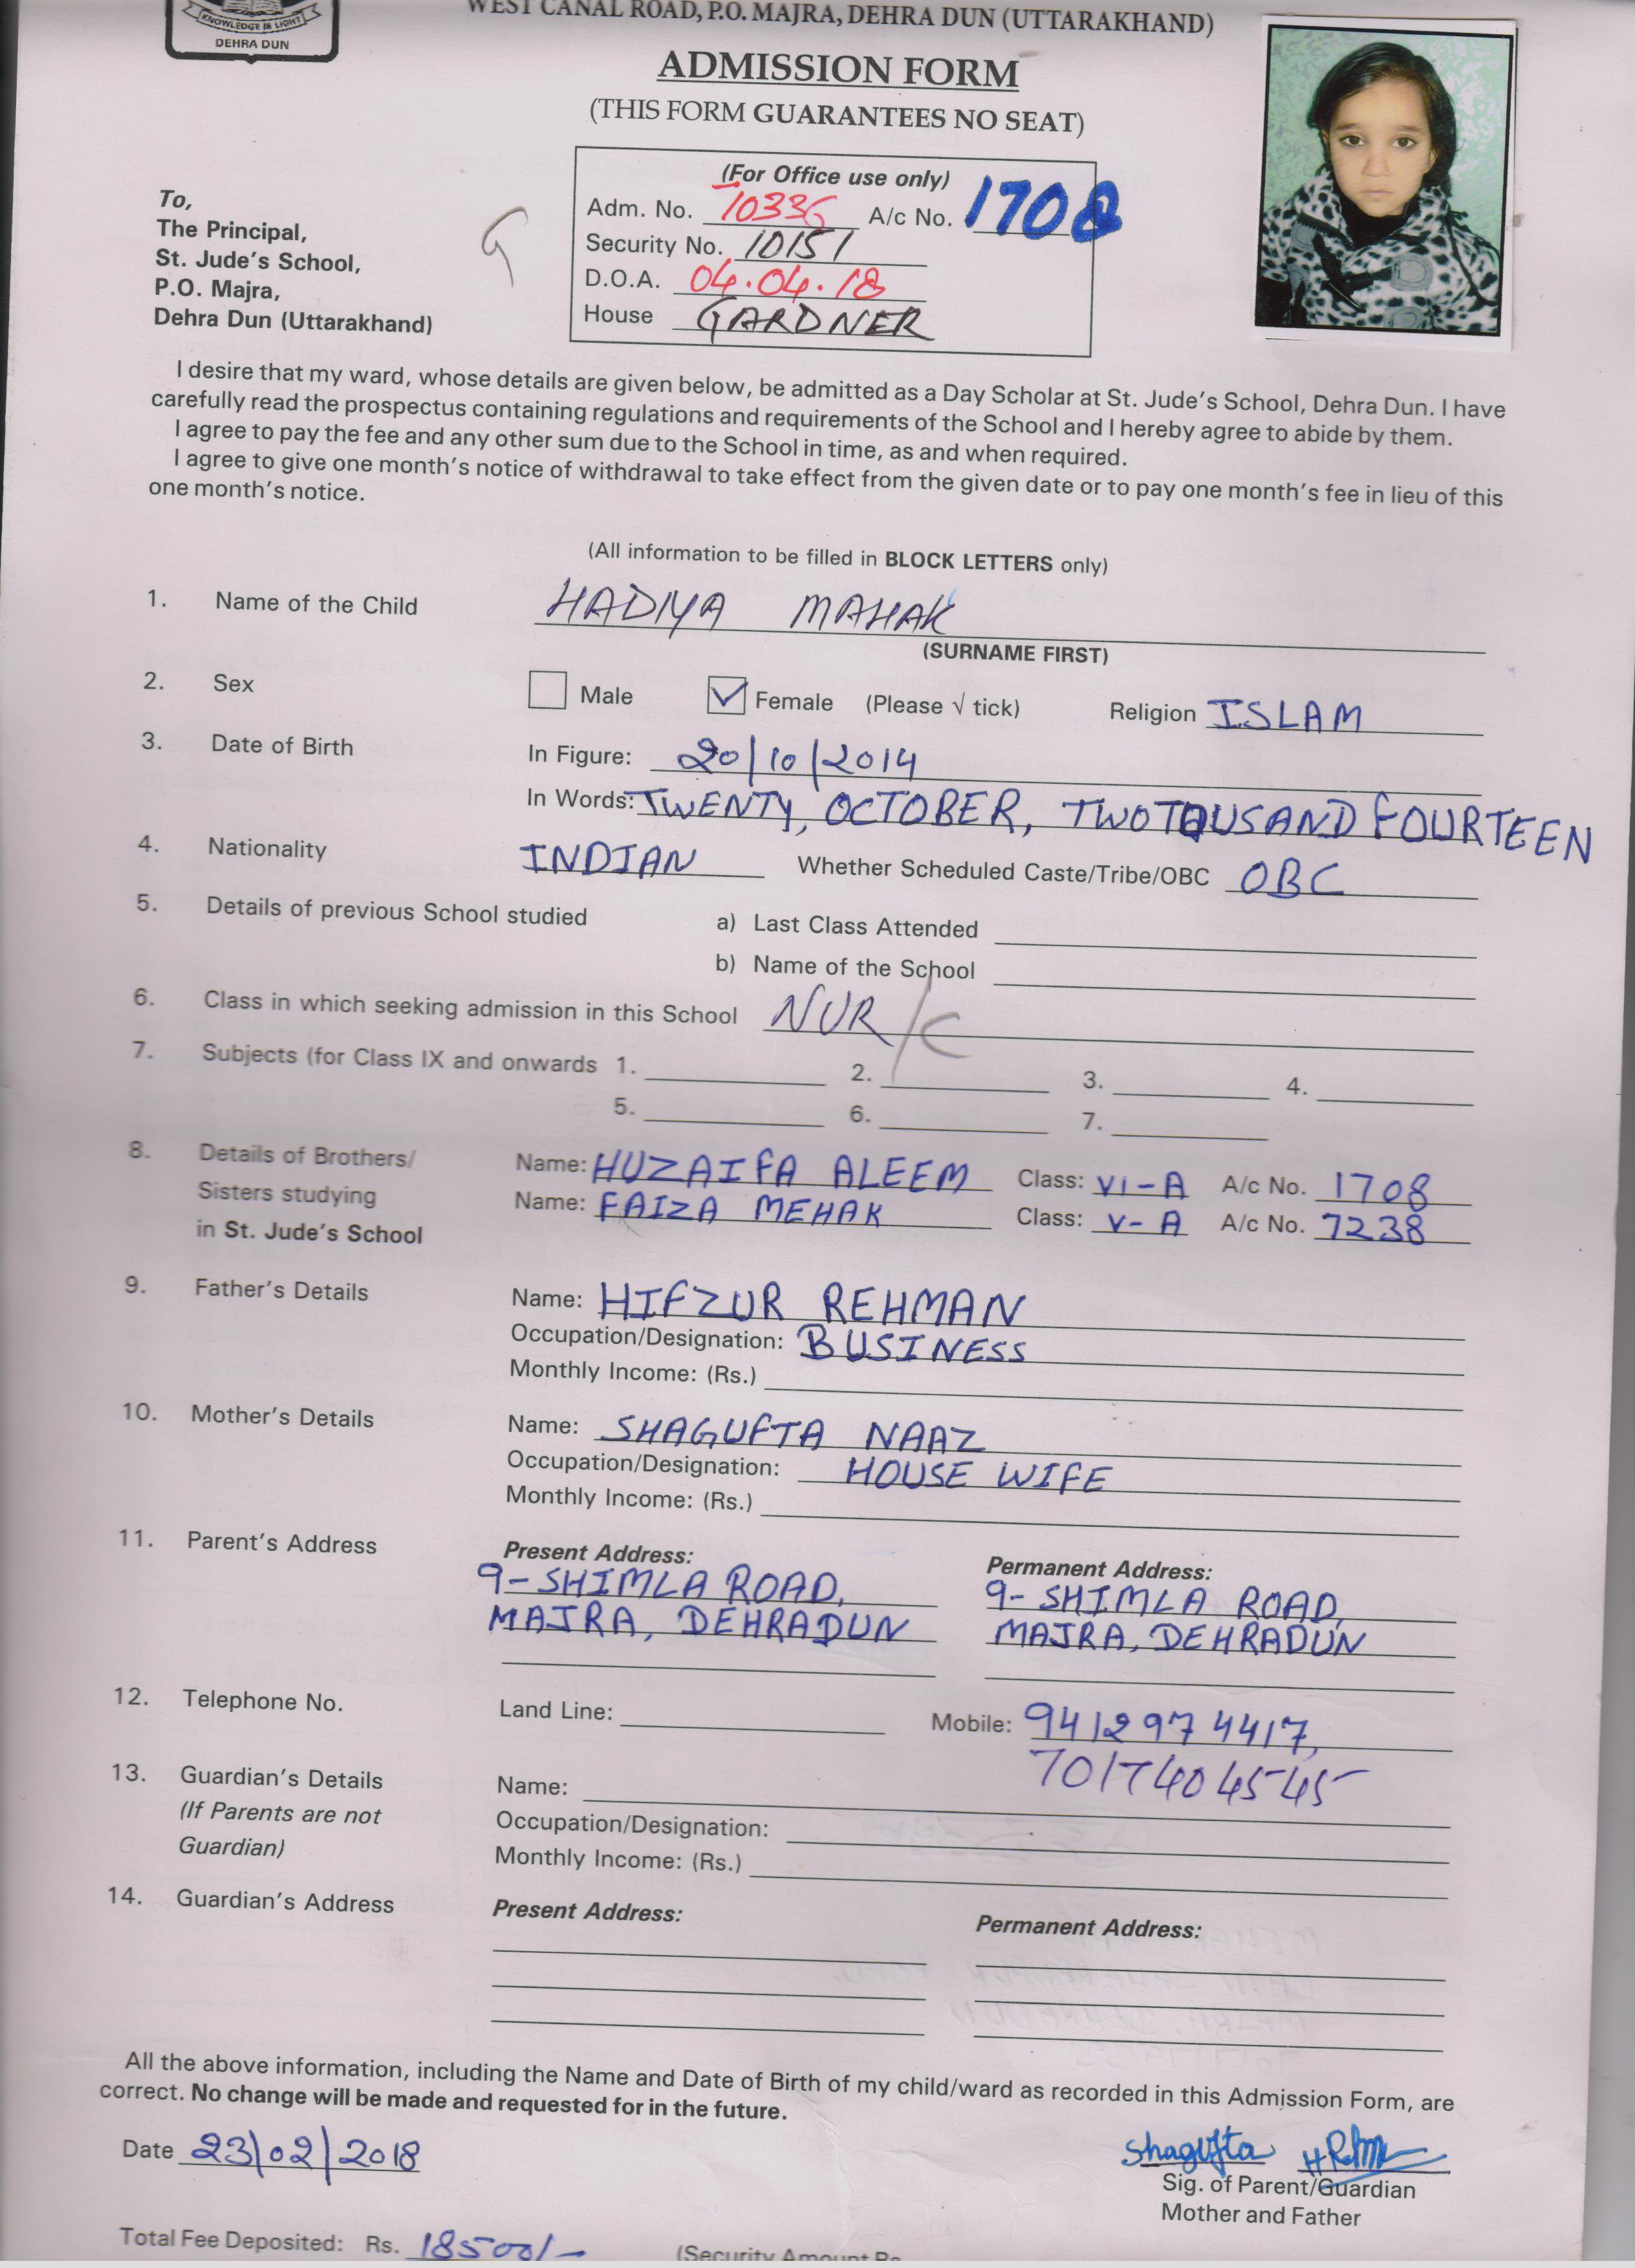 KNOWLEDGE IS LIGHT
DEHRA DUN
WEST CANAL ROAD, P.O. MAJRA, DEHRA DUN (UTTARAKHAND)
ADMISSION FORM
(THIS FORM GUARANTEES NO SEAT)
(For Office use only)
Adm. No. 10336 A/c No. 1708
Security No. 10151
D.O.A. 04.04.18
House GARDNER
To,
The Principal,
St. Jude's School,
P.O. Majra,
Dehra Dun (Uttarakhand)
G
I desire that my ward, whose details are given below, be admitted as a Day Scholar at St. Jude's School, Dehra Dun. I have
carefully read the prospectus containing regulations and requirements of the School and I hereby agree to abide by them.
I agree to pay the fee and any other sum due to the School in time, as and when required.
I agree to give one month's notice of withdrawal to take effect from the given date or to pay one month's fee in lieu of this
one month's notice.
(All information to be filled in BLOCK LETTERS only)
1. Name of the Child HADIYA MAHAK
(SURNAME FIRST)
2. Sex Male Female (Please √ tick) Religion ISLAM
3. Date of Birth In Figure: 20/10/2014
In Words: TWENTY, OCTOBER, TWO TOUSAND FOURTEEN
4. Nationality INDIAN Whether Scheduled Caste/Tribe/OBC OBC
5. Details of previous School studied a) Last Class Attended
b) Name of the School
6. Class in which seeking admission in this School NUR/C
7. Subjects (for Class IX and onwards 1. 2. 3. 4.
5. 6. 7.
8. Details of Brothers/ Name: HUZAIFA ALEEM Class: VI-A A/c No. 1708
Sisters studying Name: FAIZA MEHAK Class: V-A A/c No. 7238
in St. Jude's School
9. Father's Details Name: HIFZUR REHMAN
Occupation/Designation: BUSINESS
Monthly Income: (Rs.)
10. Mother's Details Name: SHAGUFTA NAAZ
Occupation/Designation: HOUSE WIFE
Monthly Income: (Rs.)
11. Parent's Address Present Address: Permanent Address:
9-SHIMLA ROAD, 9-SHIMLA ROAD,
MAJRA, DEHRADUN MAJRA, DEHRADUN
12. Telephone No. Land Line: Mobile: 9412974417,
7017404545
13. Guardian's Details Name:
(If Parents are not Occupation/Designation:
Guardian) Monthly Income: (Rs.)
14. Guardian's Address Present Address: Permanent Address:
All the above information, including the Name and Date of Birth of my child/ward as recorded in this Admission Form, are
correct. No change will be made and requested for in the future.
Date 23/02/2018 Shagufta
Sig. of Parent/Guardian
Mother and Father
Total Fee Deposited: Rs. 18500/- (Security Amount Rs